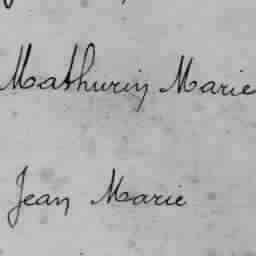 Mathurin Marie
Jean Marie